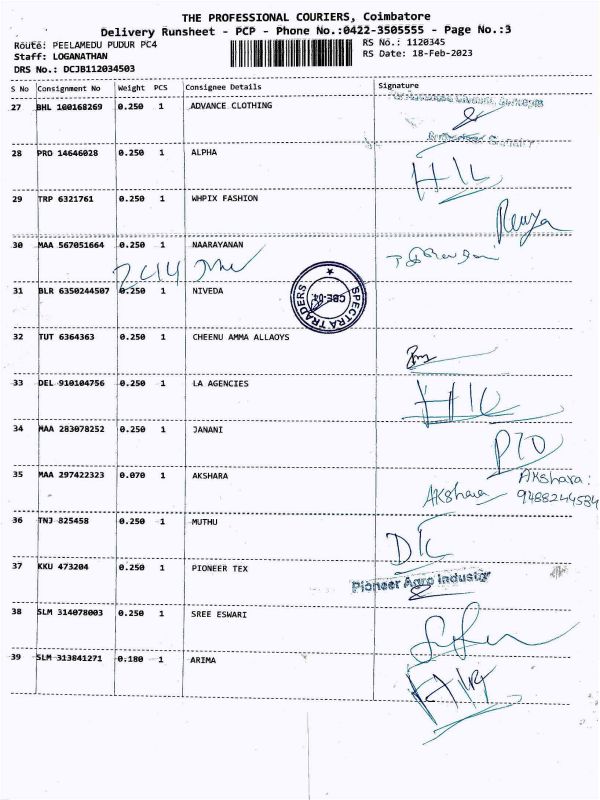 THE PROFESSIONAL COURIERS, Coimbatore
Delivery Runsheet - PCP - Phone No.:0422-3505555 - Page No.:3
Route: PEELAMEDU PUDUR PC4
RS No.: 1120345
Staff: LOGANATHAN
RS Date: 18-Feb-2023
DRS No.: DCJB112034503
S No Consignment No Weight PCS Consignee Details Signature
27 BHL 100168269 0.250 1 ADVANCE CLOTHING
28 PRO 14646028 0.250 1 ALPHA
29 TRP 6321761 0.250 1 WHPIX FASHION
Renya
30 MAA 567051664 0.250 1 NAARAYANAN
31 BLR 6350244507 0.250 1 NIVEDA
SPECTRA TRADERS
CBE-04
32 TUT 6364363 0.250 1 CHEENU AMMA ALLAOYS
33 DEL 910104756 0.250 1 LA AGENCIES
34 MAA 283078252 0.250 1 JANANI
PTO
35 MAA 297422323 0.070 1 AKSHARA
AKshara AKshara:
9488244584
36 TNJ 825458 0.250 1 MUTHU
37 KKU 473204 0.250 1 PIONEER TEX
Pioneer Agro Industry
38 SLM 314078003 0.250 1 SREE ESWARI
39 SLM 313841271 0.180 1 ARIMA